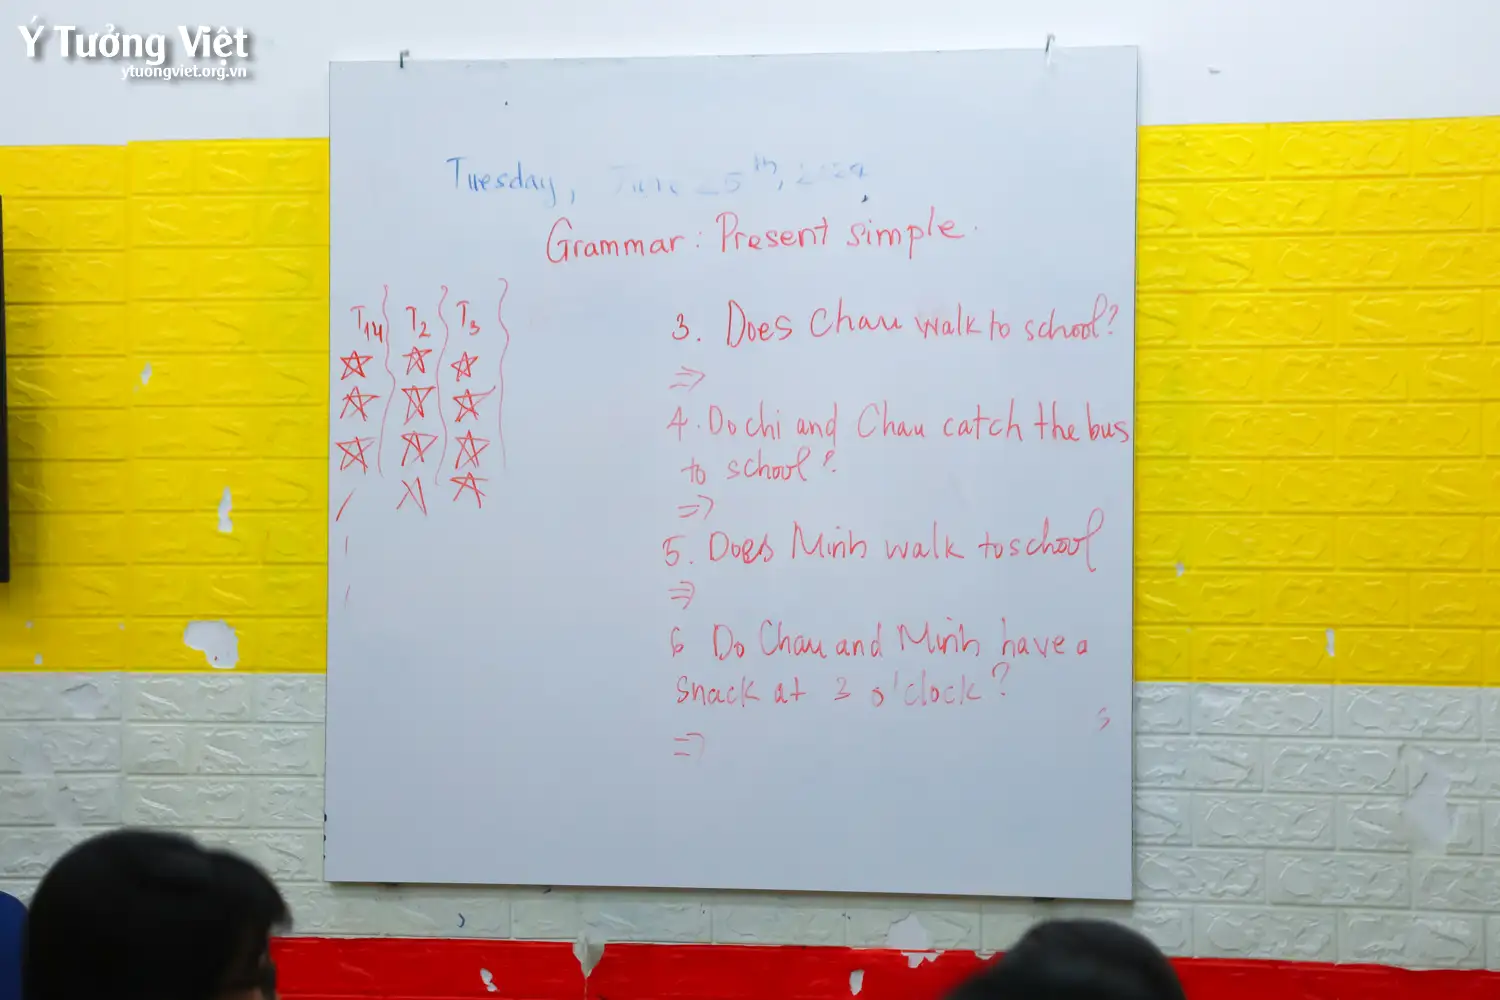 Ý Tưởng Việt
ytuongviet.org.vn
Tuesday,
Grammar: Present simple.
T14 T2 T3
3. Does Chau walk to school?
=>
4. Do chi and Chau catch the bus
to school?
=>
5. Does Minh walk to school
=>
6 Do Chau and Minh have a
snack at 3 o'clock?
=>